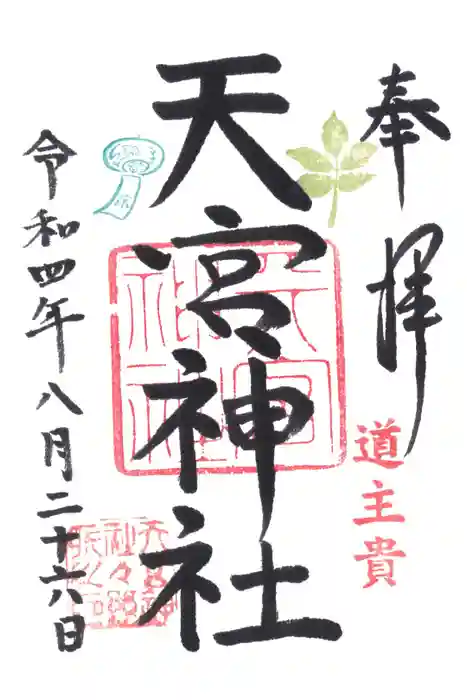 奉拝
道主貴
天宮神社
令和四年八月二十六日